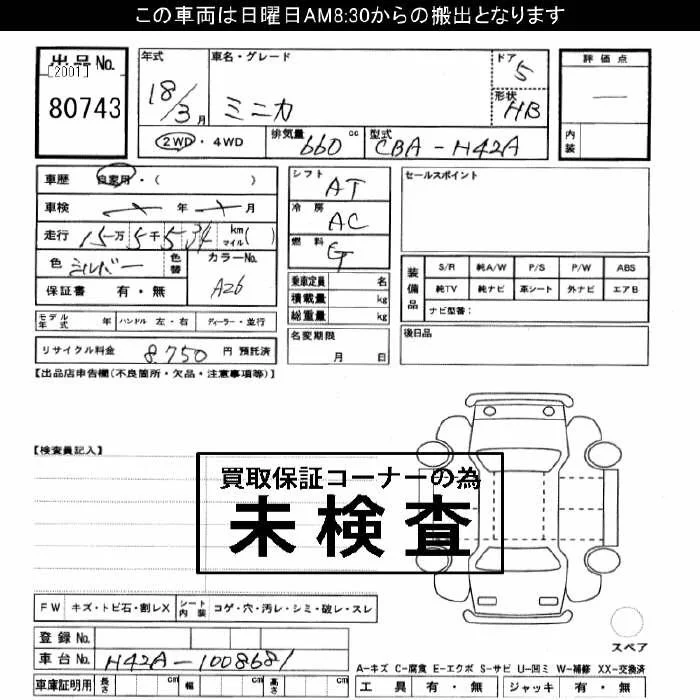 この車両は日曜日AM8:30からの搬出となります
出品No.
[2001]
80743
年式
18/3月
車名・グレード
ミニカ
ドア
5
形状
HB
評価点
―
内装
2WD・4WD
排気量 660 cc
型式 CBA-H42A
車歴 自家用・( )
車検 年 月
走行 15万5千534 km マイル( )
色 シルバー 色替
カラーNo. A26
保証書 有・無
モデル年式 年 ハンドル 左・右 ディーラー・並行
リサイクル料金 8,750 円 預託済
シフト AT
冷房 AC
燃料 G
乗車定員 名
積載量 kg
総重量 kg
名変期限
月 日
セールスポイント
装備品
S/R 純A/W P/S P/W ABS
純TV 純ナビ 革シート 外ナビ エアB
ナビ型番:
後日品
【出品店申告欄(不良箇所・欠品・注意事項等)】
【検査員記入】
買取保証コーナーの為
未検査
FW キズ・トビ石・割レX シート内装 コゲ・穴・汚レ・シミ・破レ・スレ
登録No.
車台No. H42A-1008681
車庫証明用 長さ cm 幅 cm 高さ cm
スペア
A-キズ C-腐食 E-エクボ S-サビ U-凹ミ W-補修 XX-交換済
工具 有・無 ジャッキ 有・無